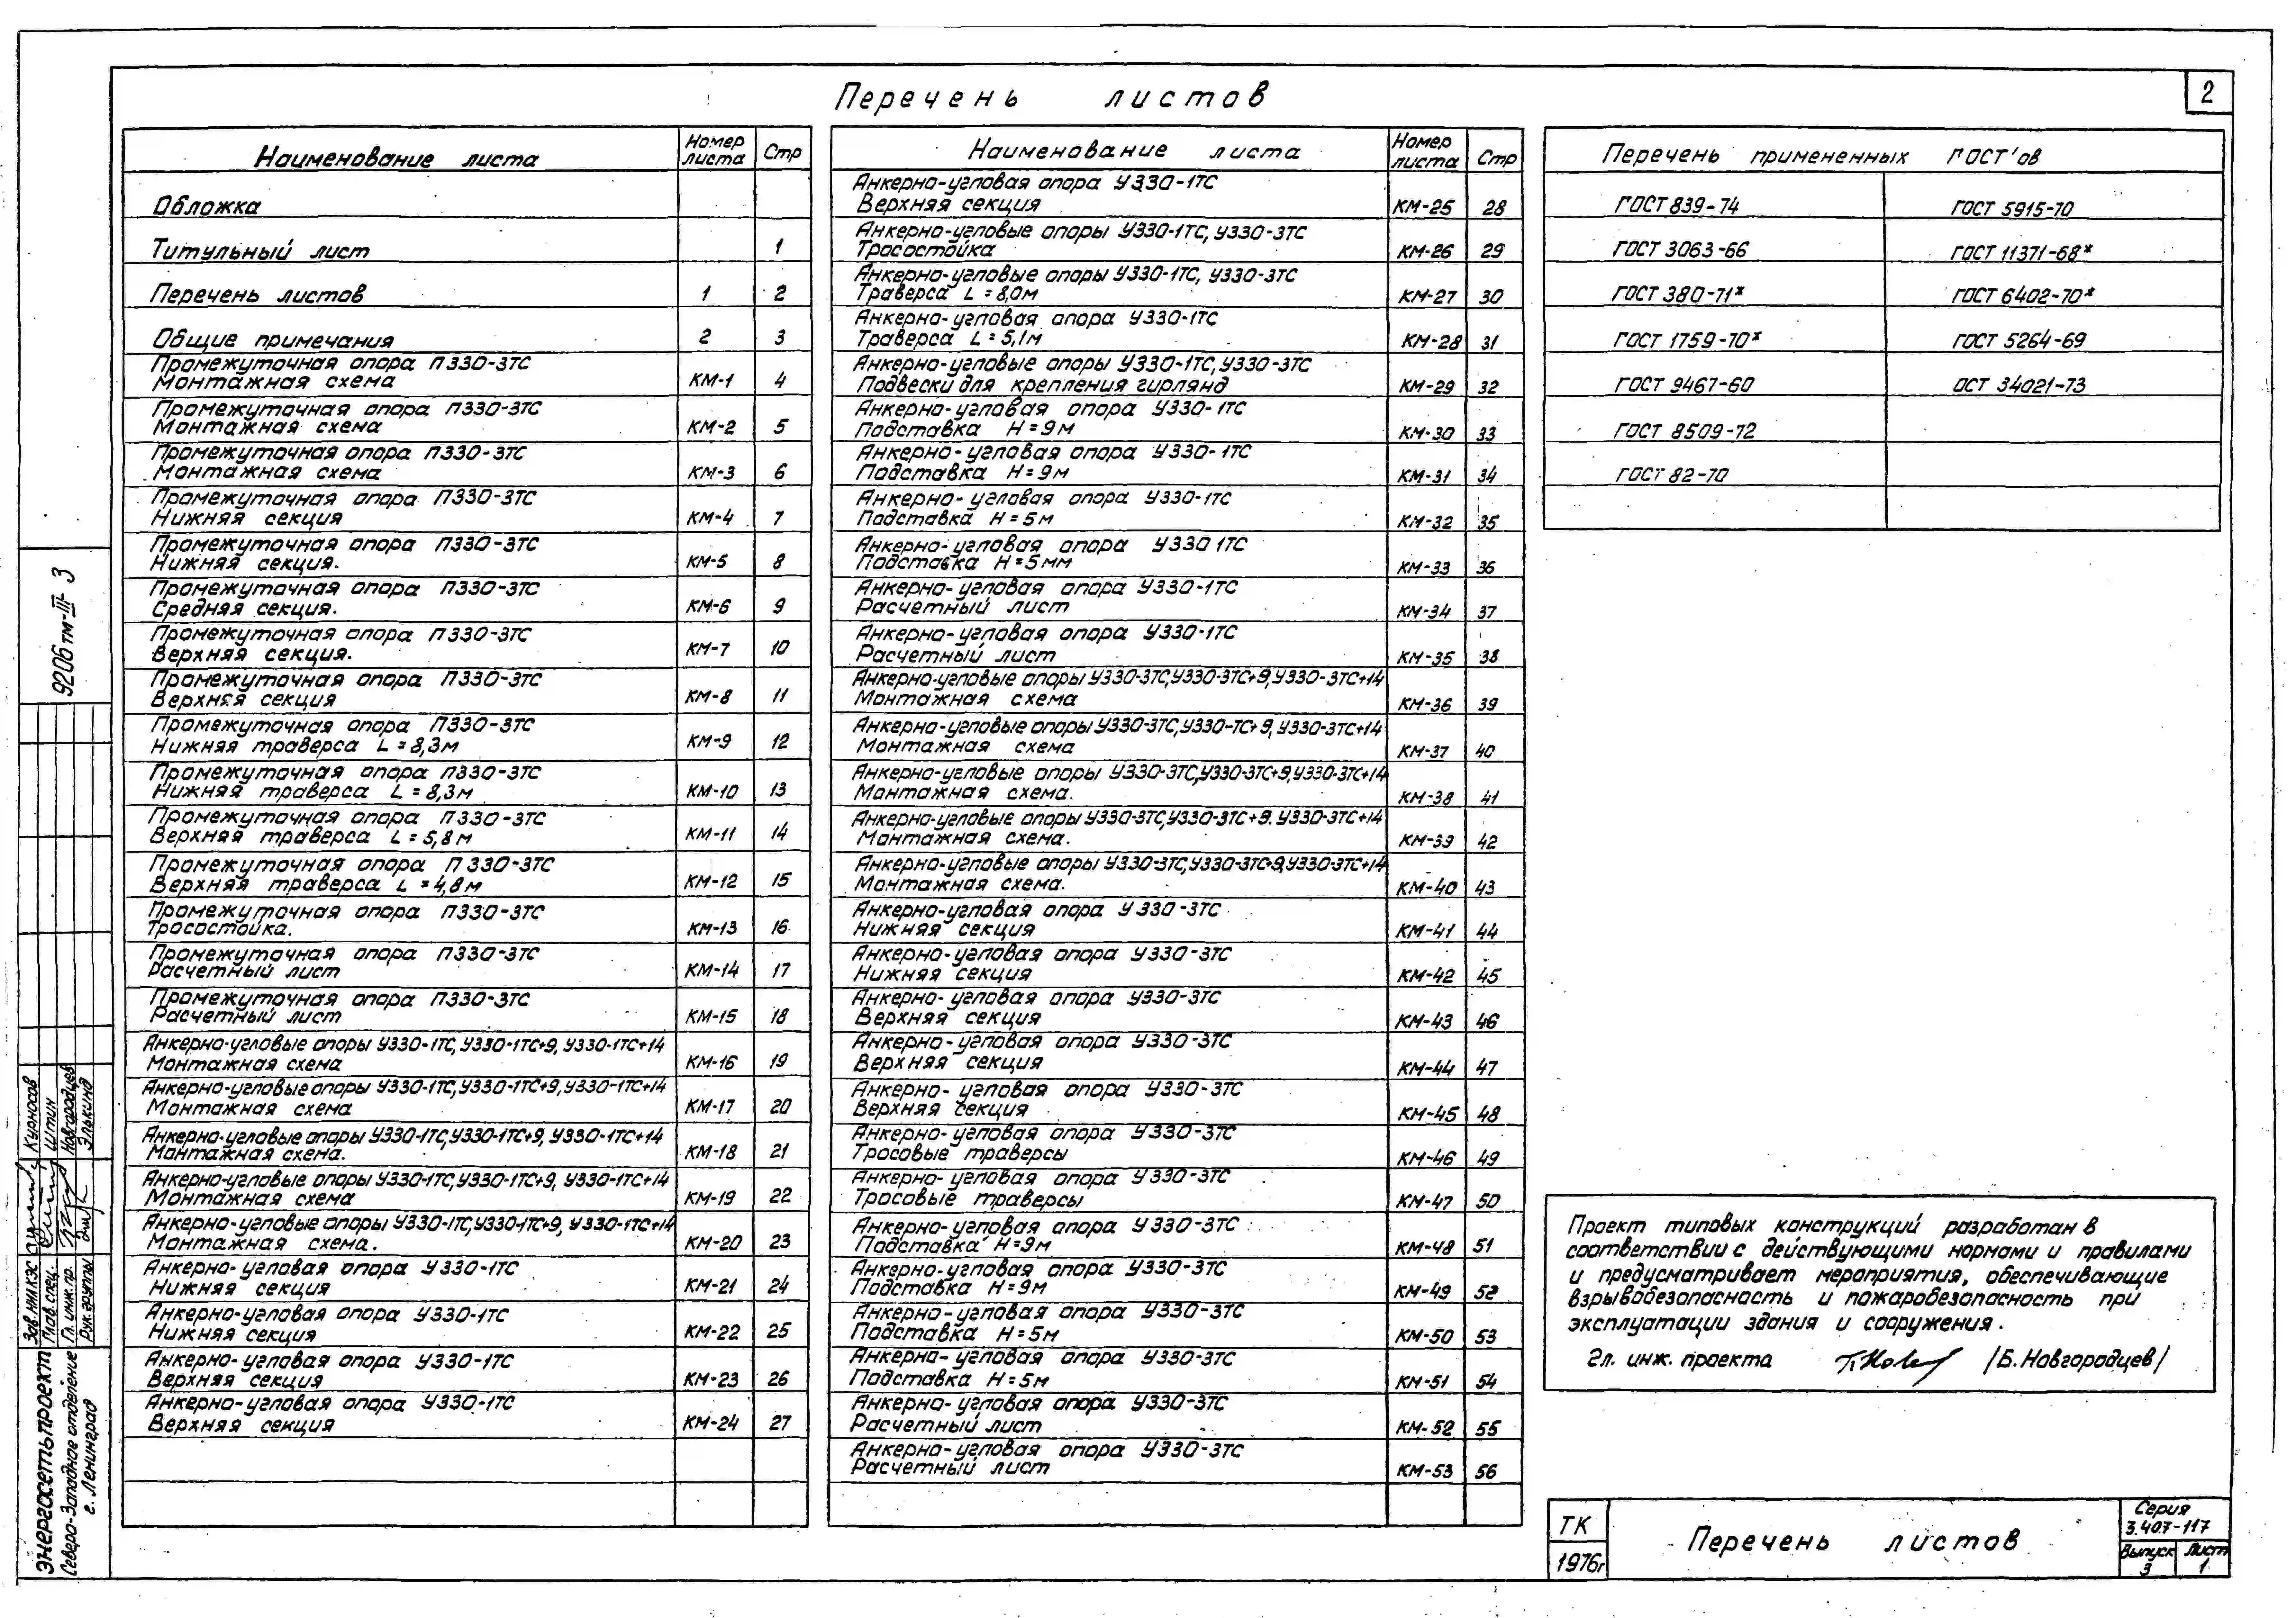 Перечень листов
2
Наименование листа Номер листа Стр
Обложка
Титульный лист 1
Перечень листов 1 2
Общие примечания 2 3
Промежуточная опора П330-3ТС
Монтажная схема КМ-1 4
Промежуточная опора П330-3ТС
Монтажная схема КМ-2 5
Промежуточная опора П330-3ТС
Монтажная схема КМ-3 6
Промежуточная опора П330-3ТС
Нижняя секция КМ-4 7
Промежуточная опора П330-3ТС
Нижняя секция. КМ-5 8
Промежуточная опора П330-3ТС
Средняя секция. КМ-6 9
Промежуточная опора П330-3ТС
Верхняя секция. КМ-7 10
Промежуточная опора П330-3ТС
Верхняя секция КМ-8 11
Промежуточная опора П330-3ТС
Нижняя траверса L=8,3м КМ-9 12
Промежуточная опора П330-3ТС
Нижняя траверса L=8,3м КМ-10 13
Промежуточная опора П330-3ТС
Верхняя траверса L=5,8м КМ-11 14
Промежуточная опора П330-3ТС
Верхняя траверса L=4,8м КМ-12 15
Промежуточная опора П330-3ТС
Тросостойка. КМ-13 16
Промежуточная опора П330-3ТС
Расчетный лист КМ-14 17
Промежуточная опора П330-3ТС
Расчетный лист КМ-15 18
Анкерно-угловые опоры У330-1ТС, У330-1ТС+9, У330-1ТС+14
Монтажная схема КМ-16 19
Анкерно-угловые опоры У330-1ТС, У330-1ТС+9, У330-1ТС+14
Монтажная схема КМ-17 20
Анкерно-угловые опоры У330-1ТС, У330-1ТС+9, У330-1ТС+14
Монтажная схема. КМ-18 21
Анкерно-угловые опоры У330-1ТС, У330-1ТС+9, У330-1ТС+14
Монтажная схема КМ-19 22
Анкерно-угловые опоры У330-1ТС, У330-1ТС+9, У330-1ТС+14
Монтажная схема. КМ-20 23
Анкерно-угловая опора У330-1ТС
Нижняя секция КМ-21 24
Анкерно-угловая опора У330-1ТС
Нижняя секция КМ-22 25
Анкерно-угловая опора У330-1ТС
Верхняя секция КМ-23 26
Анкерно-угловая опора У330-1ТС
Верхняя секция КМ-24 27
Наименование листа Номер листа Стр
Анкерно-угловая опора У330-1ТС
Верхняя секция КМ-25 28
Анкерно-угловые опоры У330-1ТС, У330-3ТС
Тросостойка КМ-26 29
Анкерно-угловые опоры У330-1ТС, У330-3ТС
Траверса L=8,0м КМ-27 30
Анкерно-угловая опора У330-1ТС
Траверса L=5,1м КМ-28 31
Анкерно-угловые опоры У330-1ТС, У330-3ТС
Подвески для крепления гирлянд КМ-29 32
Анкерно-угловая опора У330-1ТС
Подставка Н=9м КМ-30 33
Анкерно-угловая опора У330-1ТС
Подставка Н=9м КМ-31 34
Анкерно-угловая опора У330-1ТС
Подставка Н=5м КМ-32 35
Анкерно-угловая опора У330 1ТС
Подставка Н=5мм КМ-33 36
Анкерно-угловая опора У330-1ТС
Расчетный лист КМ-34 37
Анкерно-угловая опора У330-1ТС
Расчетный лист КМ-35 38
Анкерно-угловые опоры У330-3ТС, У330-3ТС+9, У330-3ТС+14
Монтажная схема КМ-36 39
Анкерно-угловые опоры У330-3ТС, У330-ТС+9, У330-3ТС+14
Монтажная схема КМ-37 40
Анкерно-угловые опоры У330-3ТС, У330-3ТС+9, У330-3ТС+14
Монтажная схема. КМ-38 41
Анкерно-угловые опоры У330-3ТС, У330-3ТС+9. У330-3ТС+14
Монтажная схема. КМ-39 42
Анкерно-угловые опоры У330-3ТС, У330-3ТС+9, У330-3ТС+14
Монтажная схема. КМ-40 43
Анкерно-угловая опора У330-3ТС
Нижняя секция КМ-41 44
Анкерно-угловая опора У330-3ТС
Нижняя секция КМ-42 45
Анкерно-угловая опора У330-3ТС
Верхняя секция КМ-43 46
Анкерно-угловая опора У330-3ТС
Верхняя секция КМ-44 47
Анкерно-угловая опора У330-3ТС
Верхняя секция КМ-45 48
Анкерно-угловая опора У330-3ТС
Тросовые траверсы КМ-46 49
Анкерно-угловая опора У330-3ТС
Тросовые траверсы КМ-47 50
Анкерно-угловая опора У330-3ТС
Подставка Н=9м КМ-48 51
Анкерно-угловая опора У330-3ТС
Подставка Н=9м КМ-49 52
Анкерно-угловая опора У330-3ТС
Подставка Н=5м КМ-50 53
Анкерно-угловая опора У330-3ТС
Подставка Н=5м КМ-51 54
Анкерно-угловая опора У330-3ТС
Расчетный лист КМ-52 55
Анкерно-угловая опора У330-3ТС
Расчетный лист КМ-53 56
Перечень примененных ГОСТ'ов
ГОСТ 839-74 ГОСТ 5915-70
ГОСТ 3063-66 ГОСТ 11371-68*
ГОСТ 380-71* ГОСТ 6402-70*
ГОСТ 1759-70* ГОСТ 5264-69
ГОСТ 9467-60 ОСТ 34021-73
ГОСТ 8509-72
ГОСТ 82-70
Проект типовых конструкций разработан в
соответствии с действующими нормами и правилами
и предусматривает мероприятия, обеспечивающие
взрывобезопасность и пожаробезопасность при
эксплуатации здания и сооружения.
Гл. инж. проекта /Б. Новгородцев/
ТК
1976г
Перечень листов
Серия
3.407-117
Выпуск Лист
3 1
9206тм-III-3
Зав. НИЛКЭС Курносов
Глав. спец. Штин
Гл. инж. пр. Новгородцев
Рук. группы Элькинд
Энергосетьпроект
Северо-Западное отделение
г. Ленинград